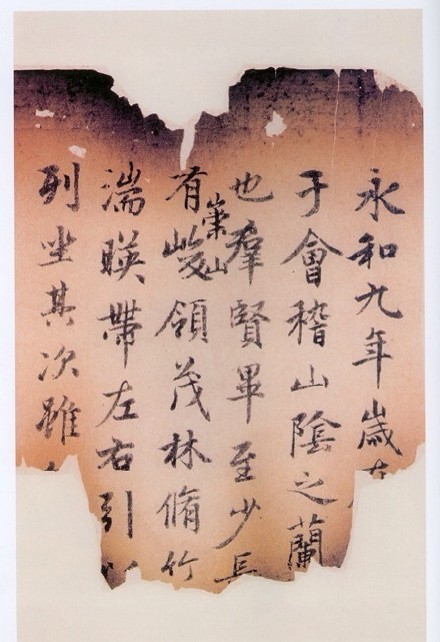 永和九年歲在
于會稽山陰之蘭
也羣賢畢至少長
有崇山峻領茂林脩竹
湍暎帶左右引
列坐其次雖